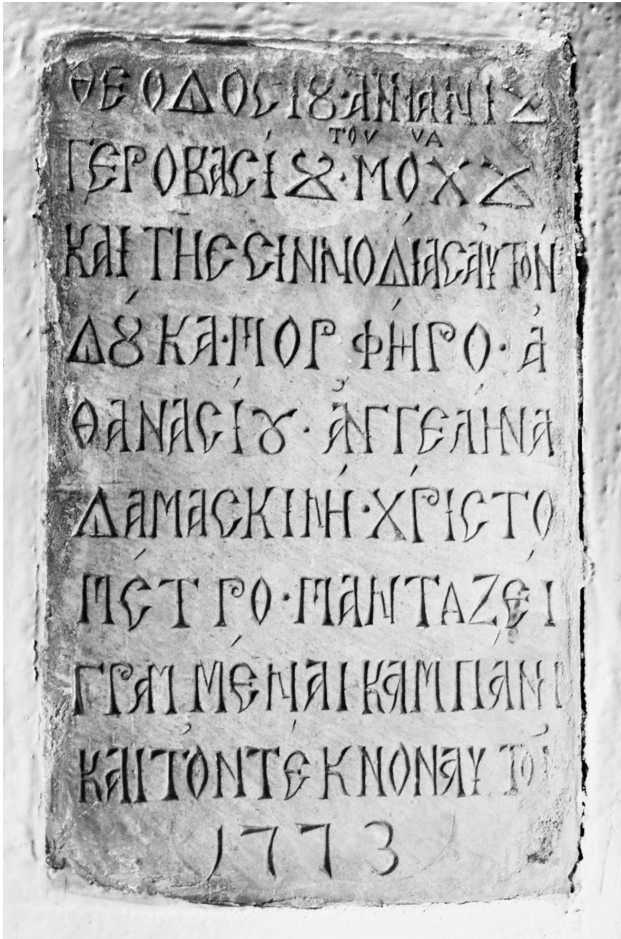 ΘΕΟΔΟCΙȢ·ΑΝΑΝΙȢ
ΤΟΥ ΥΑ
ΓΕΡΟΒΑCΙȢ·ΜΟΧȢ
ΚΑΙ ΤΗC CΙΝΝΟΔΙΑC ΑΥΤΟΝ
ΔȢΚΑ·ΠΟΡΦΗΡΟ·Α
ΘΑΝΑCΙȢ·ΑΓΓΕΛΗΝΑ
ΔΑΜΑCΚΙΝΗ·ΧΡΙCΤΟ
ΠΕΤΡΟ·ΠΑΝΤΑΖΕΙ
ΓΡΑΜΜΕΝΑΙ ΚΑΜΠΑΝΙ
ΚΑΙ ΤΟΝ ΤΕΚΝΟΝ ΑΥΤΟΝ
1773